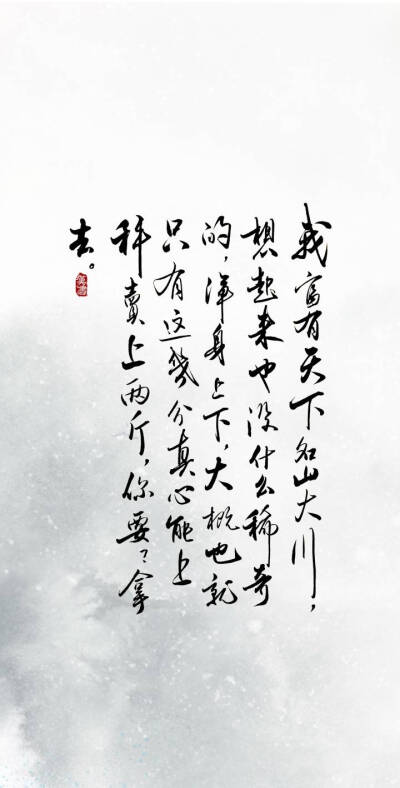 我富有天下名山大川，
想起来也没什么稀奇
的，浑身上下，大概也就
只有这幾分真心能上
秤賣上两斤，你要？拿
去。